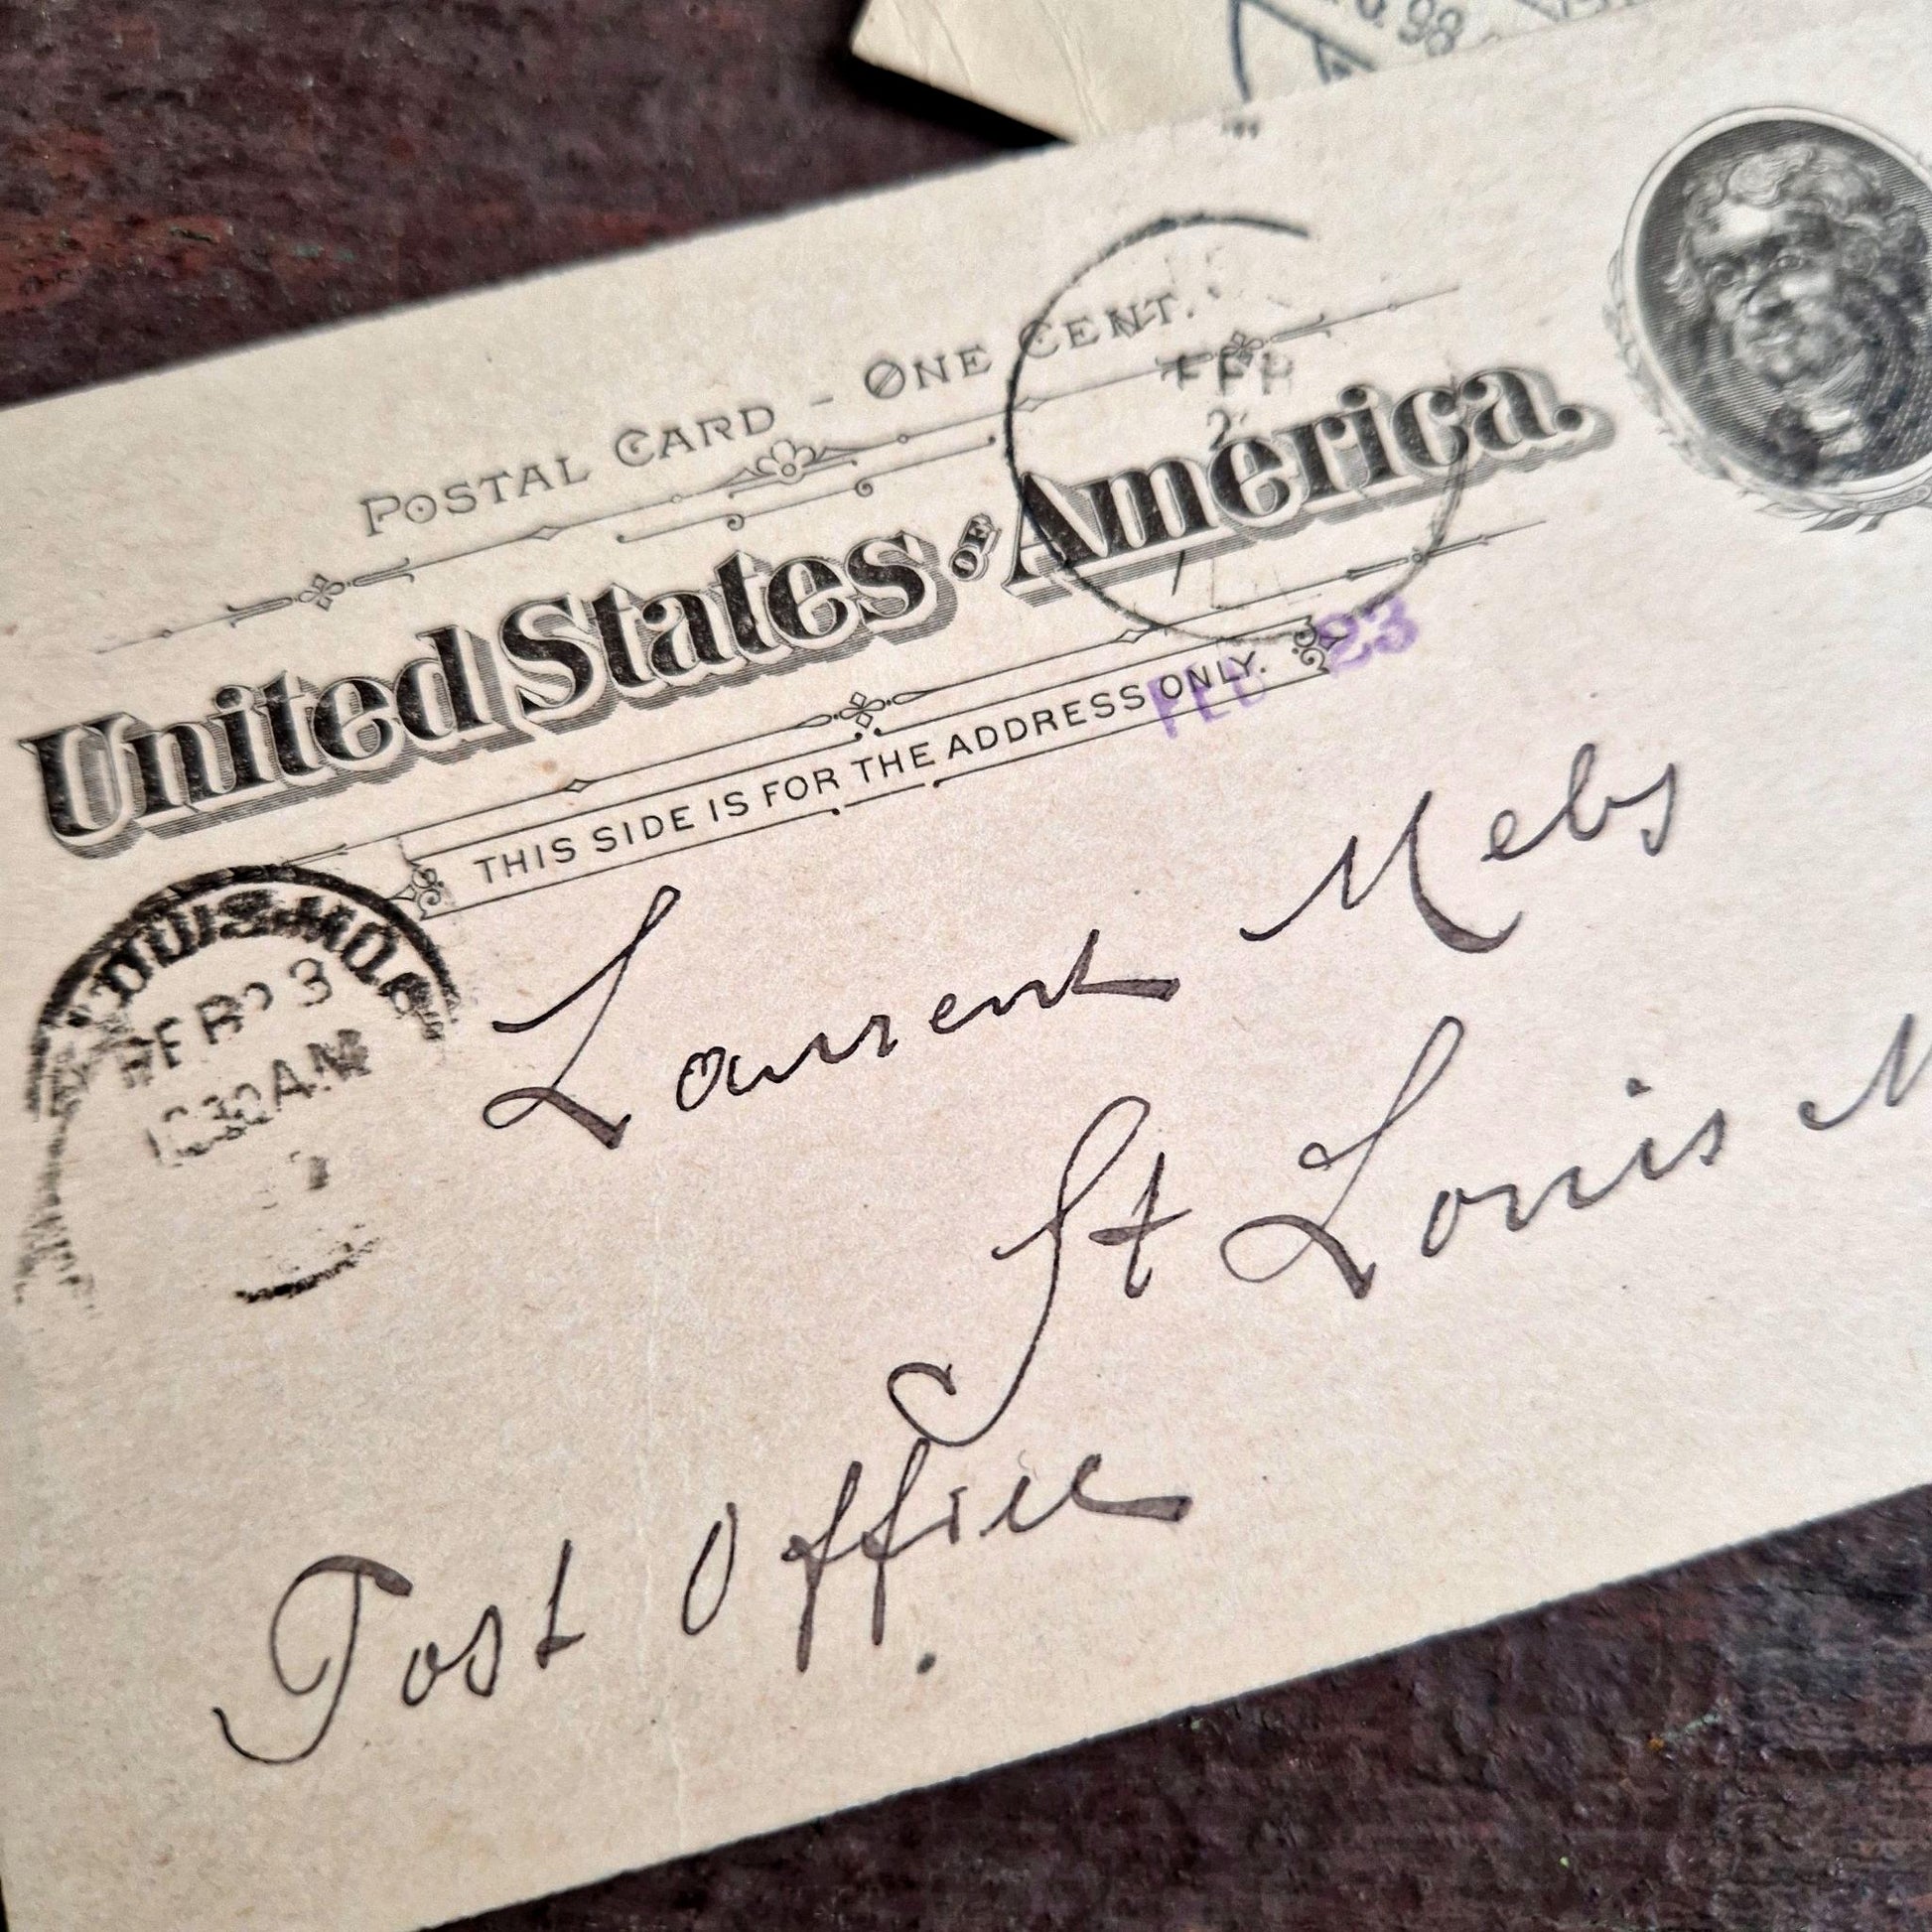 98
POSTAL CARD - ONE CENT.
United States OF America.
THIS SIDE IS FOR THE ADDRESS ONLY.
FEB 23
LOUIS, MO.
FEB 23
30 AM
Laurent Mebs
St Louis M
Post Office